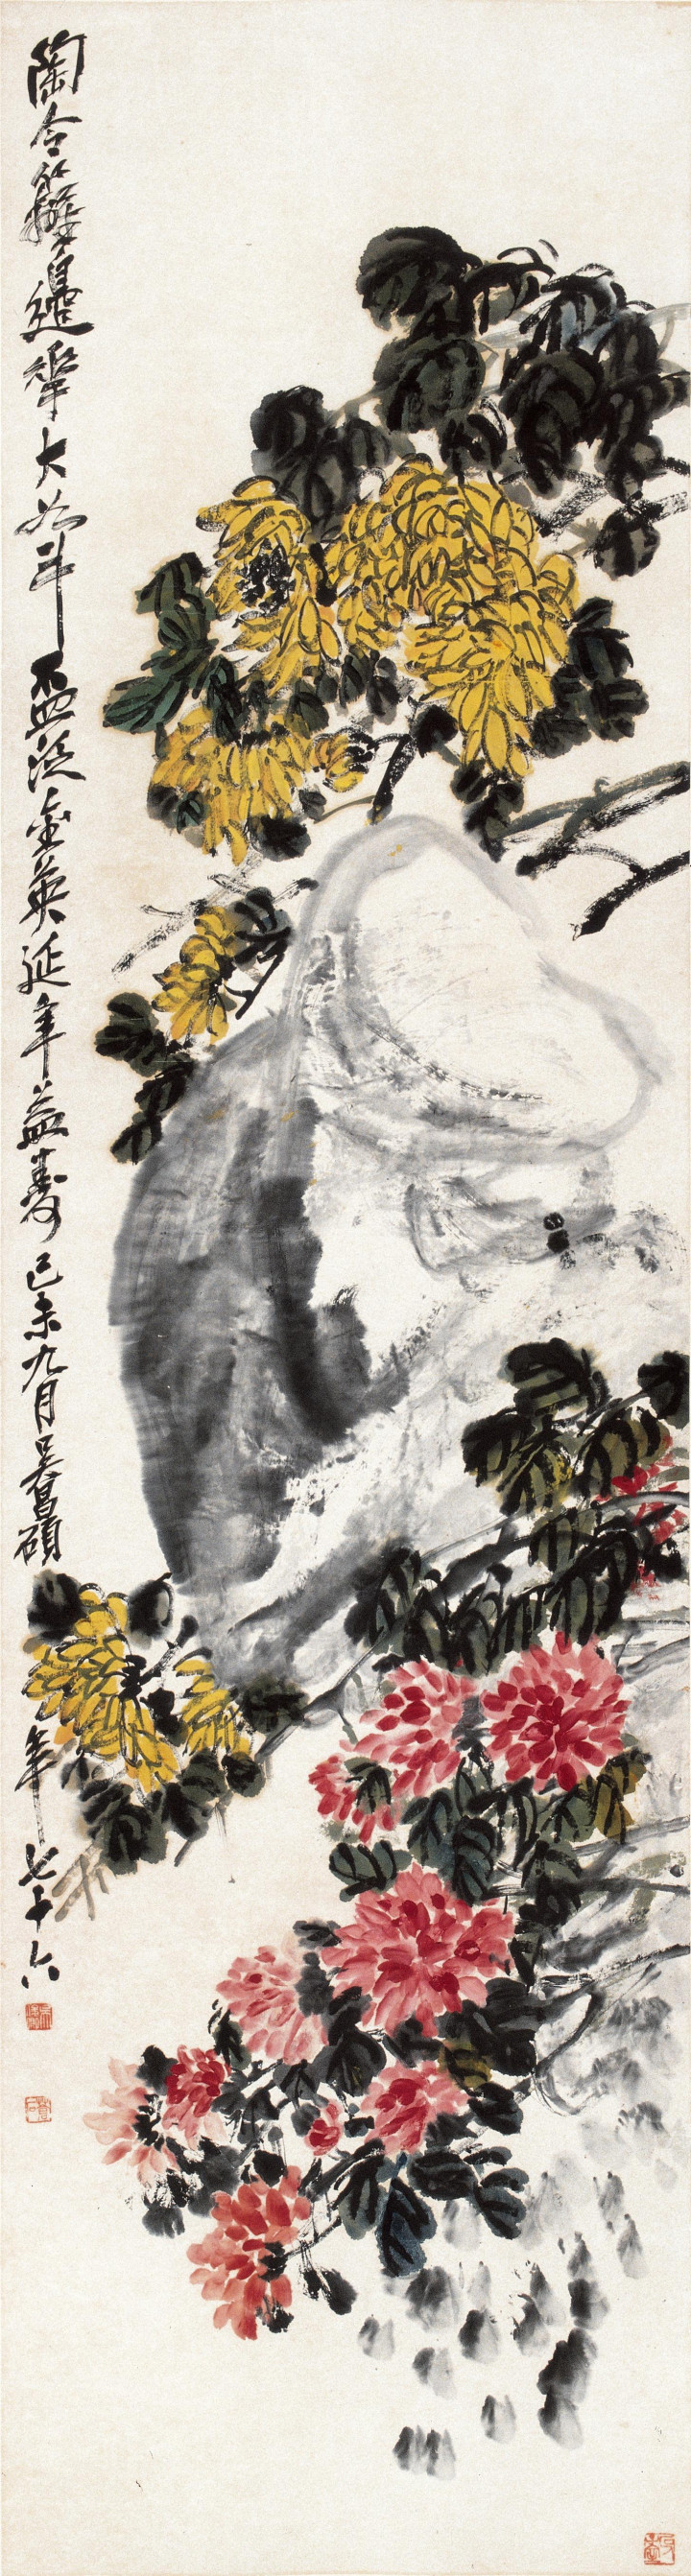 陶令籬邊華大如斗盃泛金英延年益壽己未九月吳昌碩
年七十六